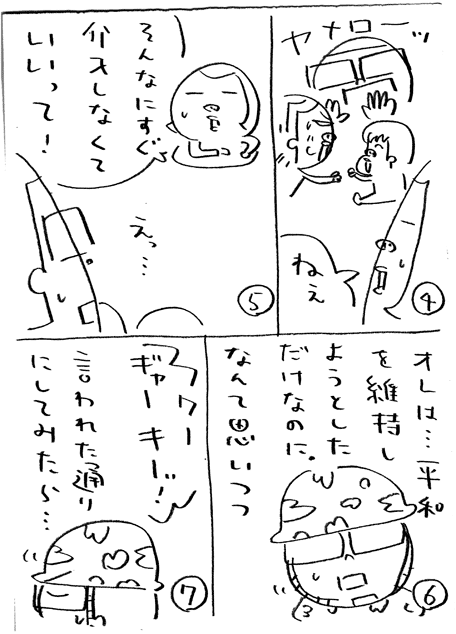 ヤメローッ
ねえ
④
そんなにすぐ
介入しなくて
いいって！
えっ…
⑤
オレは…平和
を維持し
ようとした
だけなのに。
なんて思いつつ
⑥
ワー
ギャーキー！
言われた通り
にしてみたら…
⑦